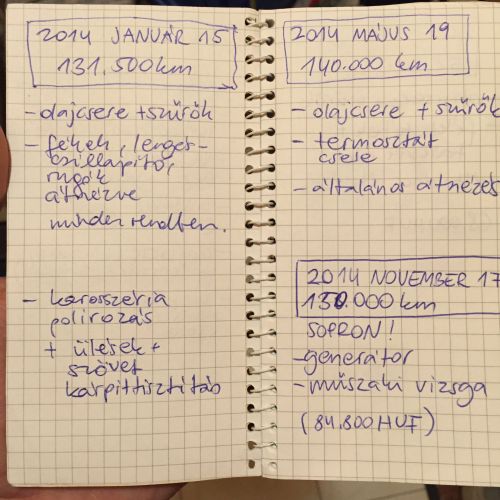 2014 JANUÁR 15
131.500km
- olajcsere + szűrők
- fékek, lengés-
csillapító,
rugók
átnézve
minden rendben.
- karosszéria
polírozás
+ ülések +
szövet
kárpittisztítás
2014 MÁJUS 19
140.000 km
- olajcsere + szűrők
- termosztát
csere
- általános átnézés
2014 NOVEMBER 17
150.000 km
SOPRON!
- generátor
- műszaki vizsga
(84.800 HUF)